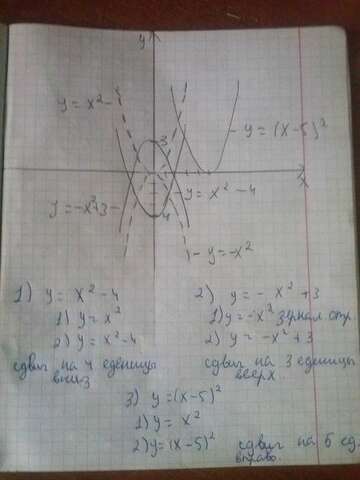 y
y = x² -
3
- y = (x-5)²
x
- y = x² - 4
y = -x²+3 -
4
- y = -x²
1) y = x² - 4
1) y = x²
2) y = x² - 4
сдвиг на 4 еденицы
вниз
2) y = - x² + 3
1) y = -x² зеркал отр.
2) y = -x² + 3
сдвиг на 3 еденицы
вверх
3) y = (x-5)²
1) y = x²
2) y = (x-5)² сдвиг на 5 ед.
вправо.